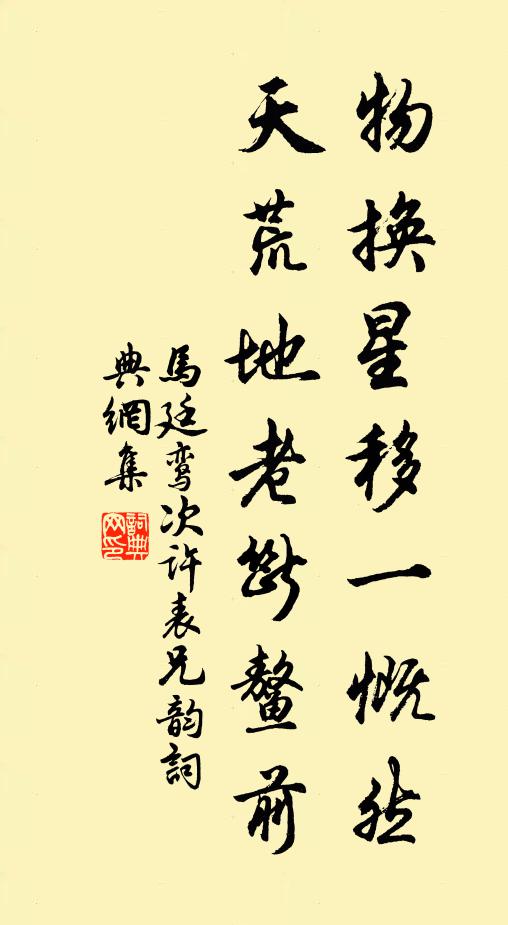 物換星移一慨然
天荒地老斷鼇前
馬廷鸞次許表兄韵詞
典網集
詞典網印